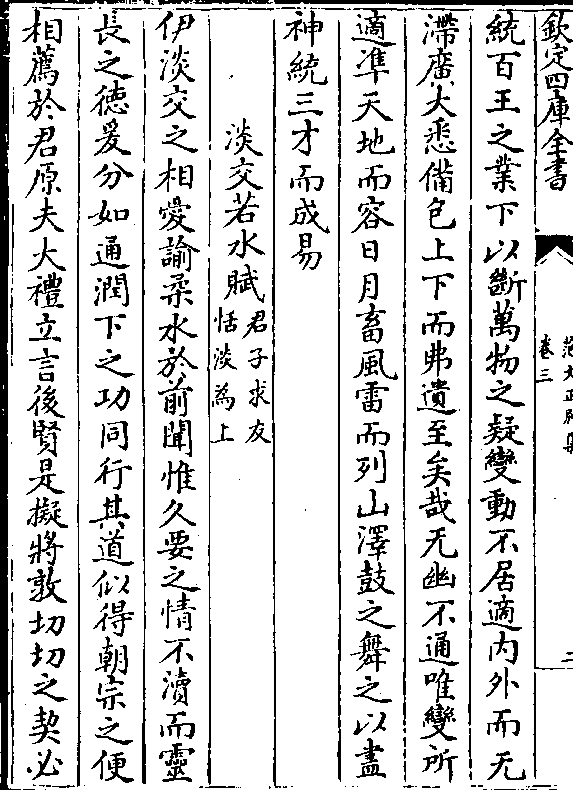 欽定四庫全書
卷三
二
統百王之業下以斷萬物之疑變動不居適内外而无
滯廣大悉備包上下而弗遺至矣哉无幽不通唯變所
適準天地而容日月畜風雷而列山澤鼓之舞之以盡
神統三才而成易
淡交若水賦君子求友恬淡為上
伊淡交之相愛諭柔水於前聞惟久要之情不瀆而靈
長之德爰分如通潤下之功同行其道似得朝宗之便
相薦於君原夫大禮立言後賢是擬將敦切切之契必